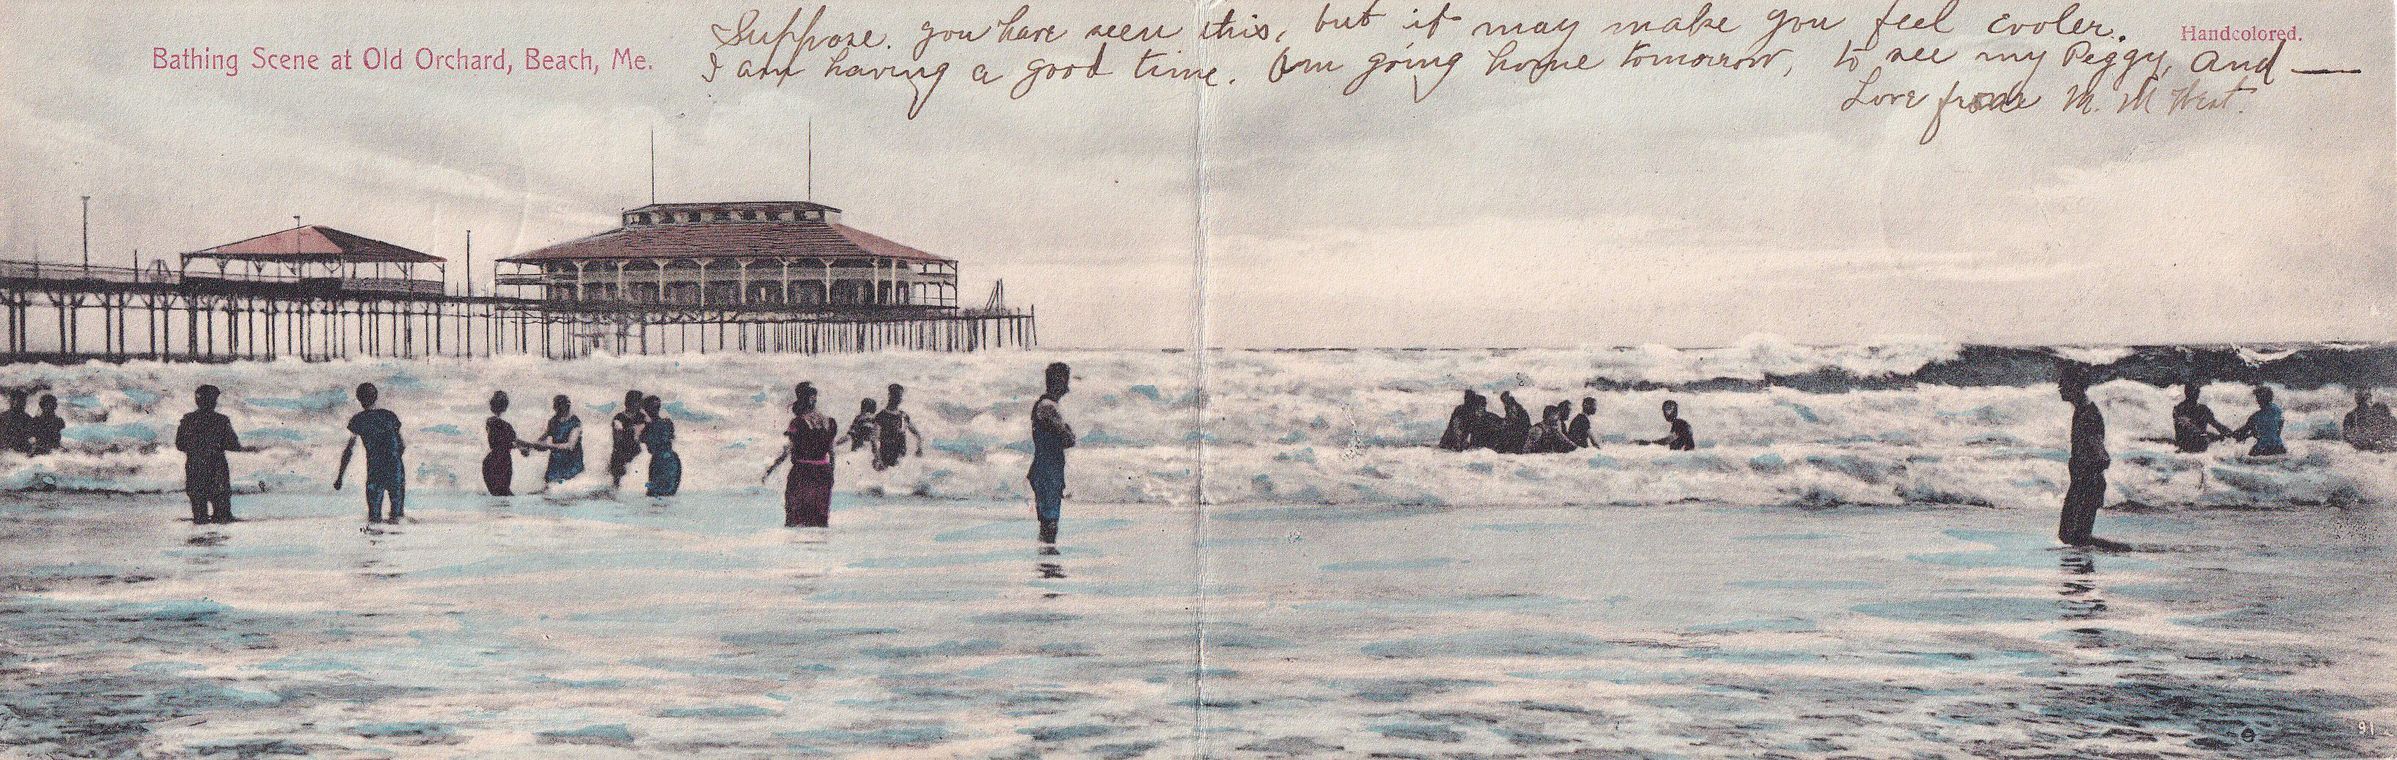 Bathing Scene at Old Orchard, Beach, Me.
Suppose. you have seen this, but it may make you feel cooler.
Handcolored.
I am having a good time. Am going home tomorrow, to see my Peggy, and —
Love from M. M West.
91